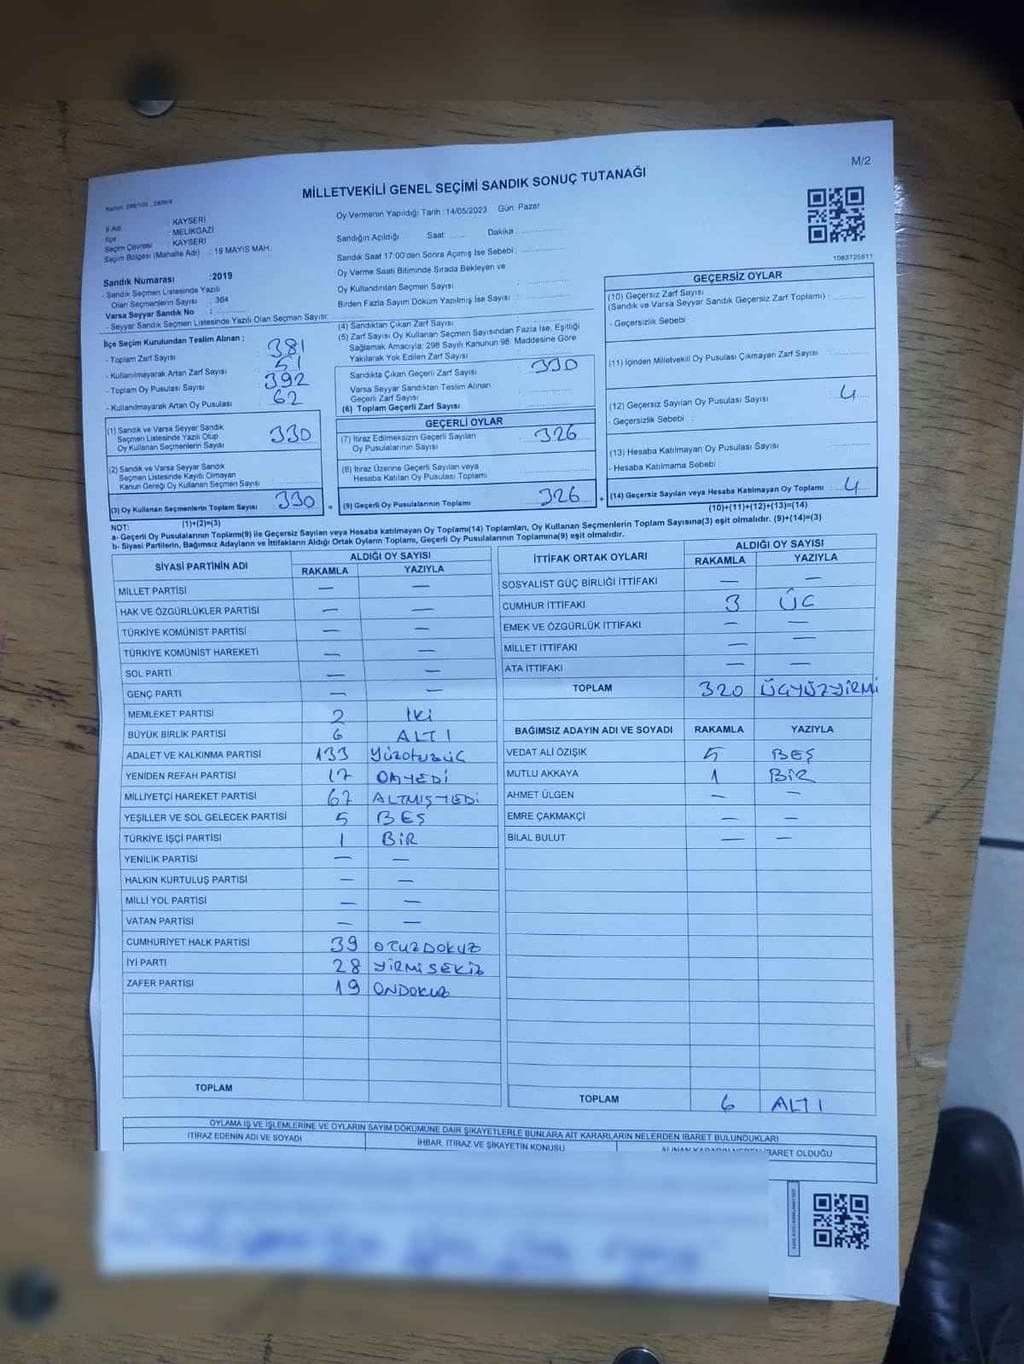 M/2
MİLLETVEKİLİ GENEL SEÇİMİ SANDIK SONUÇ TUTANAĞI
İl Adı : KAYSERİ
İlçe : MELİKGAZİ
Seçim Çevresi : KAYSERİ
Seçim Bölgesi (Mahalle Adı) : 19 MAYIS MAH.
Oy Vermenin Yapıldığı Tarih :14/05/2023 Gün: Pazar
Sandığın Açıldığı Saat: Dakika :
Sandık Saat 17:00'den Sonra Açılmış İse Sebebi :
Oy Verme Saati Bitiminde Sırada Bekleyen ve
Oy Kullandırılan Seçmen Sayısı :
Birden Fazla Sayım Döküm Yapılmış İse Sayısı :
1083725811
Sandık Numarası :2019
- Sandık Seçmen Listesinde Yazılı
Olan Seçmenlerin Sayısı : 364
Varsa Seyyar Sandık No :
- Seyyar Sandık Seçmen Listesinde Yazılı Olan Seçmen Sayısı:
İlçe Seçim Kurulundan Teslim Alınan :
- Toplam Zarf Sayısı 381
- Kullanılmayarak Artan Zarf Sayısı 51
- Toplam Oy Pusulası Sayısı 392
- Kullanılmayarak Artan Oy Pusulası 62
(1) Sandık ve Varsa Seyyar Sandık
Seçmen Listesinde Yazılı Olup
Oy Kullanan Seçmenlerin Sayısı 330
(2) Sandık ve Varsa Seyyar Sandık
Seçmen Listesinde Kaydı Olmayan
Kanun Gereği Oy Kullanan Seçmen Sayısı
(3) Oy Kullanan Seçmenlerin Toplam Sayısı 330
(1)+(2)=(3)
(4) Sandıktan Çıkan Zarf Sayısı
(5) Zarf Sayısı Oy Kullanan Seçmen Sayısından Fazla İse, Eşitliği
Sağlamak Amacıyla; 298 Sayılı Kanunun 98. Maddesine Göre
Yakılarak Yok Edilen Zarf Sayısı
Sandıkta Çıkan Geçerli Zarf Sayısı 330
Varsa Seyyar Sandıktan Teslim Alınan
Geçerli Zarf Sayısı
(6) Toplam Geçerli Zarf Sayısı
GEÇERLİ OYLAR
(7) İtiraz Edilmeksizin Geçerli Sayılan
Oy Pusulalarının Sayısı 326
(8) İtiraz Üzerine Geçerli Sayılan veya
Hesaba Katılan Oy Pusulası Toplamı
= (9) Geçerli Oy Pusulalarının Toplamı 326
GEÇERSİZ OYLAR
(10) Geçersiz Zarf Sayısı
(Sandık ve Varsa Seyyar Sandık Geçersiz Zarf Toplamı) :
- Geçersizlik Sebebi :
(11) İçinden Milletvekili Oy Pusulası Çıkmayan Zarf Sayısı
(12) Geçersiz Sayılan Oy Pusulası Sayısı 4
- Geçersizlik Sebebi :
(13) Hesaba Katılmayan Oy Pusulası Sayısı
- Hesaba Katılmama Sebebi
+ (14) Geçersiz Sayılan veya Hesaba Katılmayan Oy Toplamı 4
(10)+(11)+(12)+(13)=(14)
NOT:
a- Geçerli Oy Pusulalarının Toplamı(9) ile Geçersiz Sayılan veya Hesaba katılmayan Oy Toplamı(14) Toplamları, Oy Kullanan Seçmenlerin Toplam Sayısına(3) eşit olmalıdır. (9)+(14)=(3)
b- Siyasi Partilerin, Bağımsız Adayların ve İttifakların Aldığı Ortak Oyların Toplamı, Geçerli Oy Pusulalarının Toplamına(9) eşit olmalıdır.
SİYASİ PARTİNİN ADI ALDIĞI OY SAYISI
RAKAMLA YAZIYLA
MİLLET PARTİSİ — —
HAK VE ÖZGÜRLÜKLER PARTİSİ — —
TÜRKİYE KOMÜNİST PARTİSİ — —
TÜRKİYE KOMÜNİST HAREKETİ — —
SOL PARTİ — —
GENÇ PARTİ — —
MEMLEKET PARTİSİ 2 İKİ
BÜYÜK BİRLİK PARTİSİ 6 ALTI
ADALET VE KALKINMA PARTİSİ 133 YÜZOTUZÜÇ
YENİDEN REFAH PARTİSİ 17 ONYEDİ
MİLLİYETÇİ HAREKET PARTİSİ 67 ALTMIŞYEDİ
YEŞİLLER VE SOL GELECEK PARTİSİ 5 BEŞ
TÜRKİYE İŞÇİ PARTİSİ 1 BİR
YENİLİK PARTİSİ — —
HALKIN KURTULUŞ PARTİSİ — —
MİLLİ YOL PARTİSİ — —
VATAN PARTİSİ — —
CUMHURİYET HALK PARTİSİ 39 OTUZDOKUZ
İYİ PARTİ 28 YİRMİSEKİZ
ZAFER PARTİSİ 19 ONDOKUZ
TOPLAM
İTTİFAK ORTAK OYLARI ALDIĞI OY SAYISI
RAKAMLA YAZIYLA
SOSYALİST GÜÇ BİRLİĞİ İTTİFAKI — —
CUMHUR İTTİFAKI 3 ÜÇ
EMEK VE ÖZGÜRLÜK İTTİFAKI — —
MİLLET İTTİFAKI — —
ATA İTTİFAKI — —
TOPLAM 320 ÜÇYÜZYİRMİ
BAĞIMSIZ ADAYIN ADI VE SOYADI RAKAMLA YAZIYLA
VEDAT ALİ ÖZIŞIK 5 BEŞ
MUTLU AKKAYA 1 BİR
AHMET ÜLGEN — —
EMRE ÇAKMAKÇİ — —
BİLAL BULUT — —
TOPLAM 6 ALTI
OYLAMA İŞ VE İŞLEMLERİNE VE OYLARIN SAYIM DÖKÜMÜNE DAİR ŞİKAYETLERLE BUNLARA AİT KARARLARIN NELERDEN İBARET BULUNDUKLARI
İTİRAZ EDENİN ADI VE SOYADI İHBAR, İTİRAZ VE ŞİKAYETİN KONUSU OLDUĞU